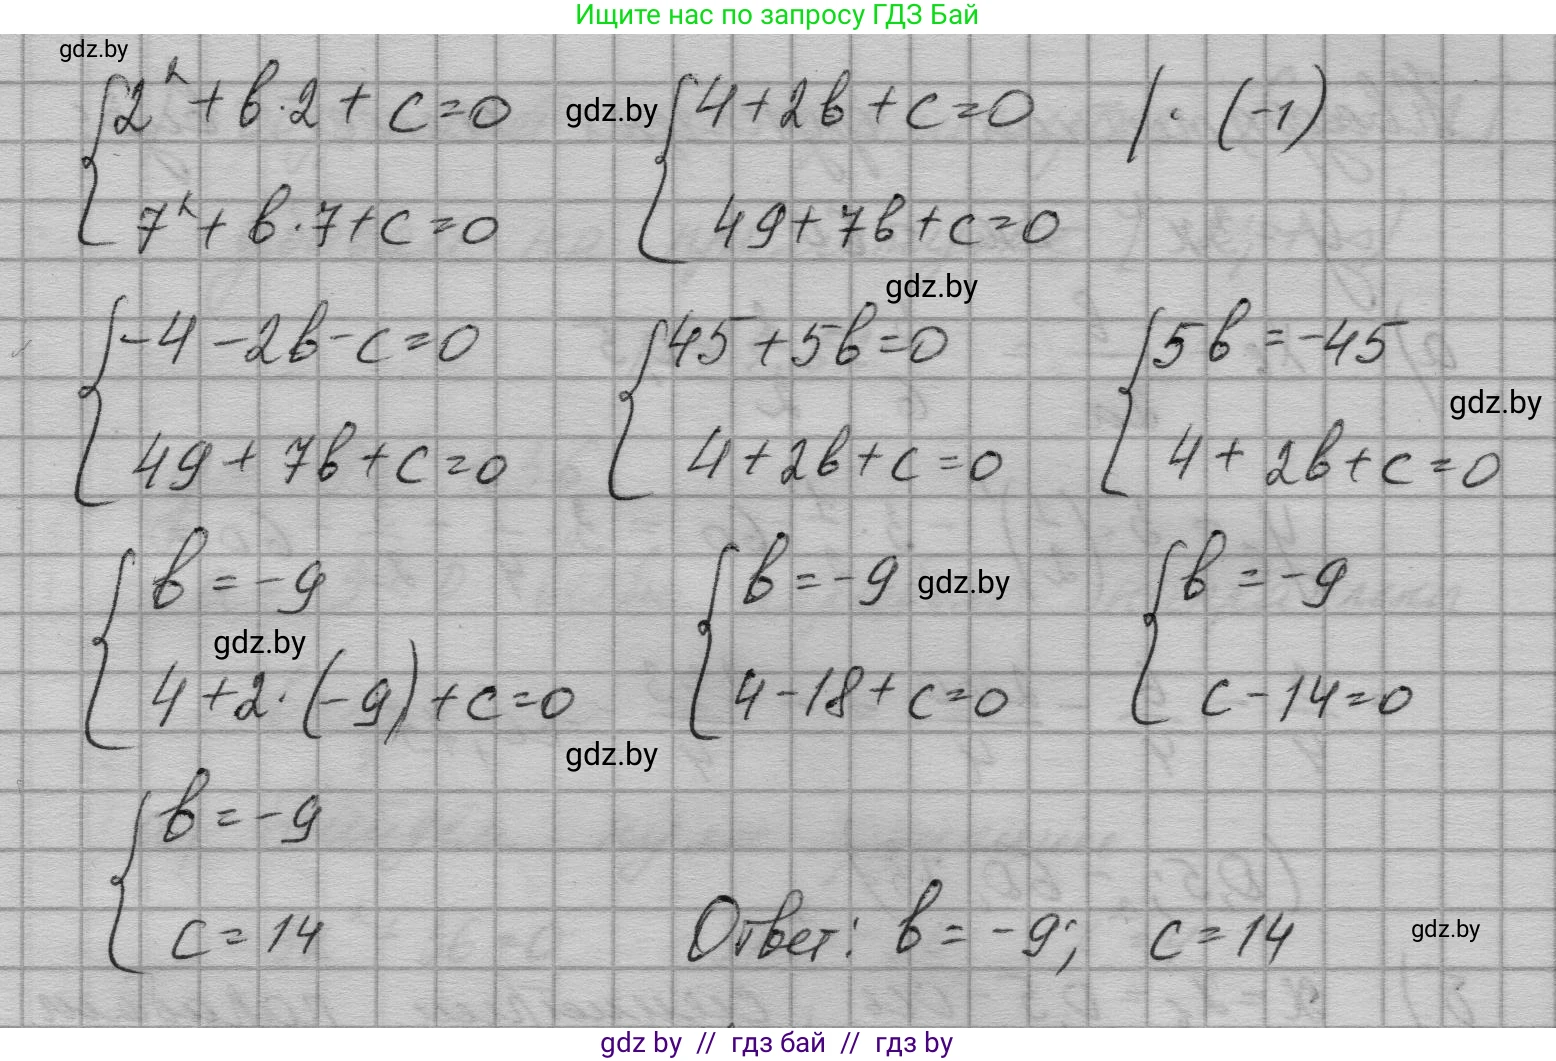 Ищите нас по запросу ГДЗ Бай
gdz.by
{ 2² + в·2 + c = 0
7² + в·7 + c = 0
gdz.by
{ 4 + 2в + c = 0 | · (-1)
49 + 7в + c = 0
gdz.by
{ -4 - 2в - c = 0
49 + 7в + c = 0
{ 45 + 5в = 0
4 + 2в + c = 0
{ 5в = -45
4 + 2в + c = 0
gdz.by
{ в = -9
4 + 2·(-9) + c = 0
gdz.by
{ в = -9
4 - 18 + c = 0
gdz.by
{ в = -9
c - 14 = 0
gdz.by
{ в = -9
c = 14
Ответ: в = -9; c = 14
gdz.by
gdz by // гдз бай // gdz by